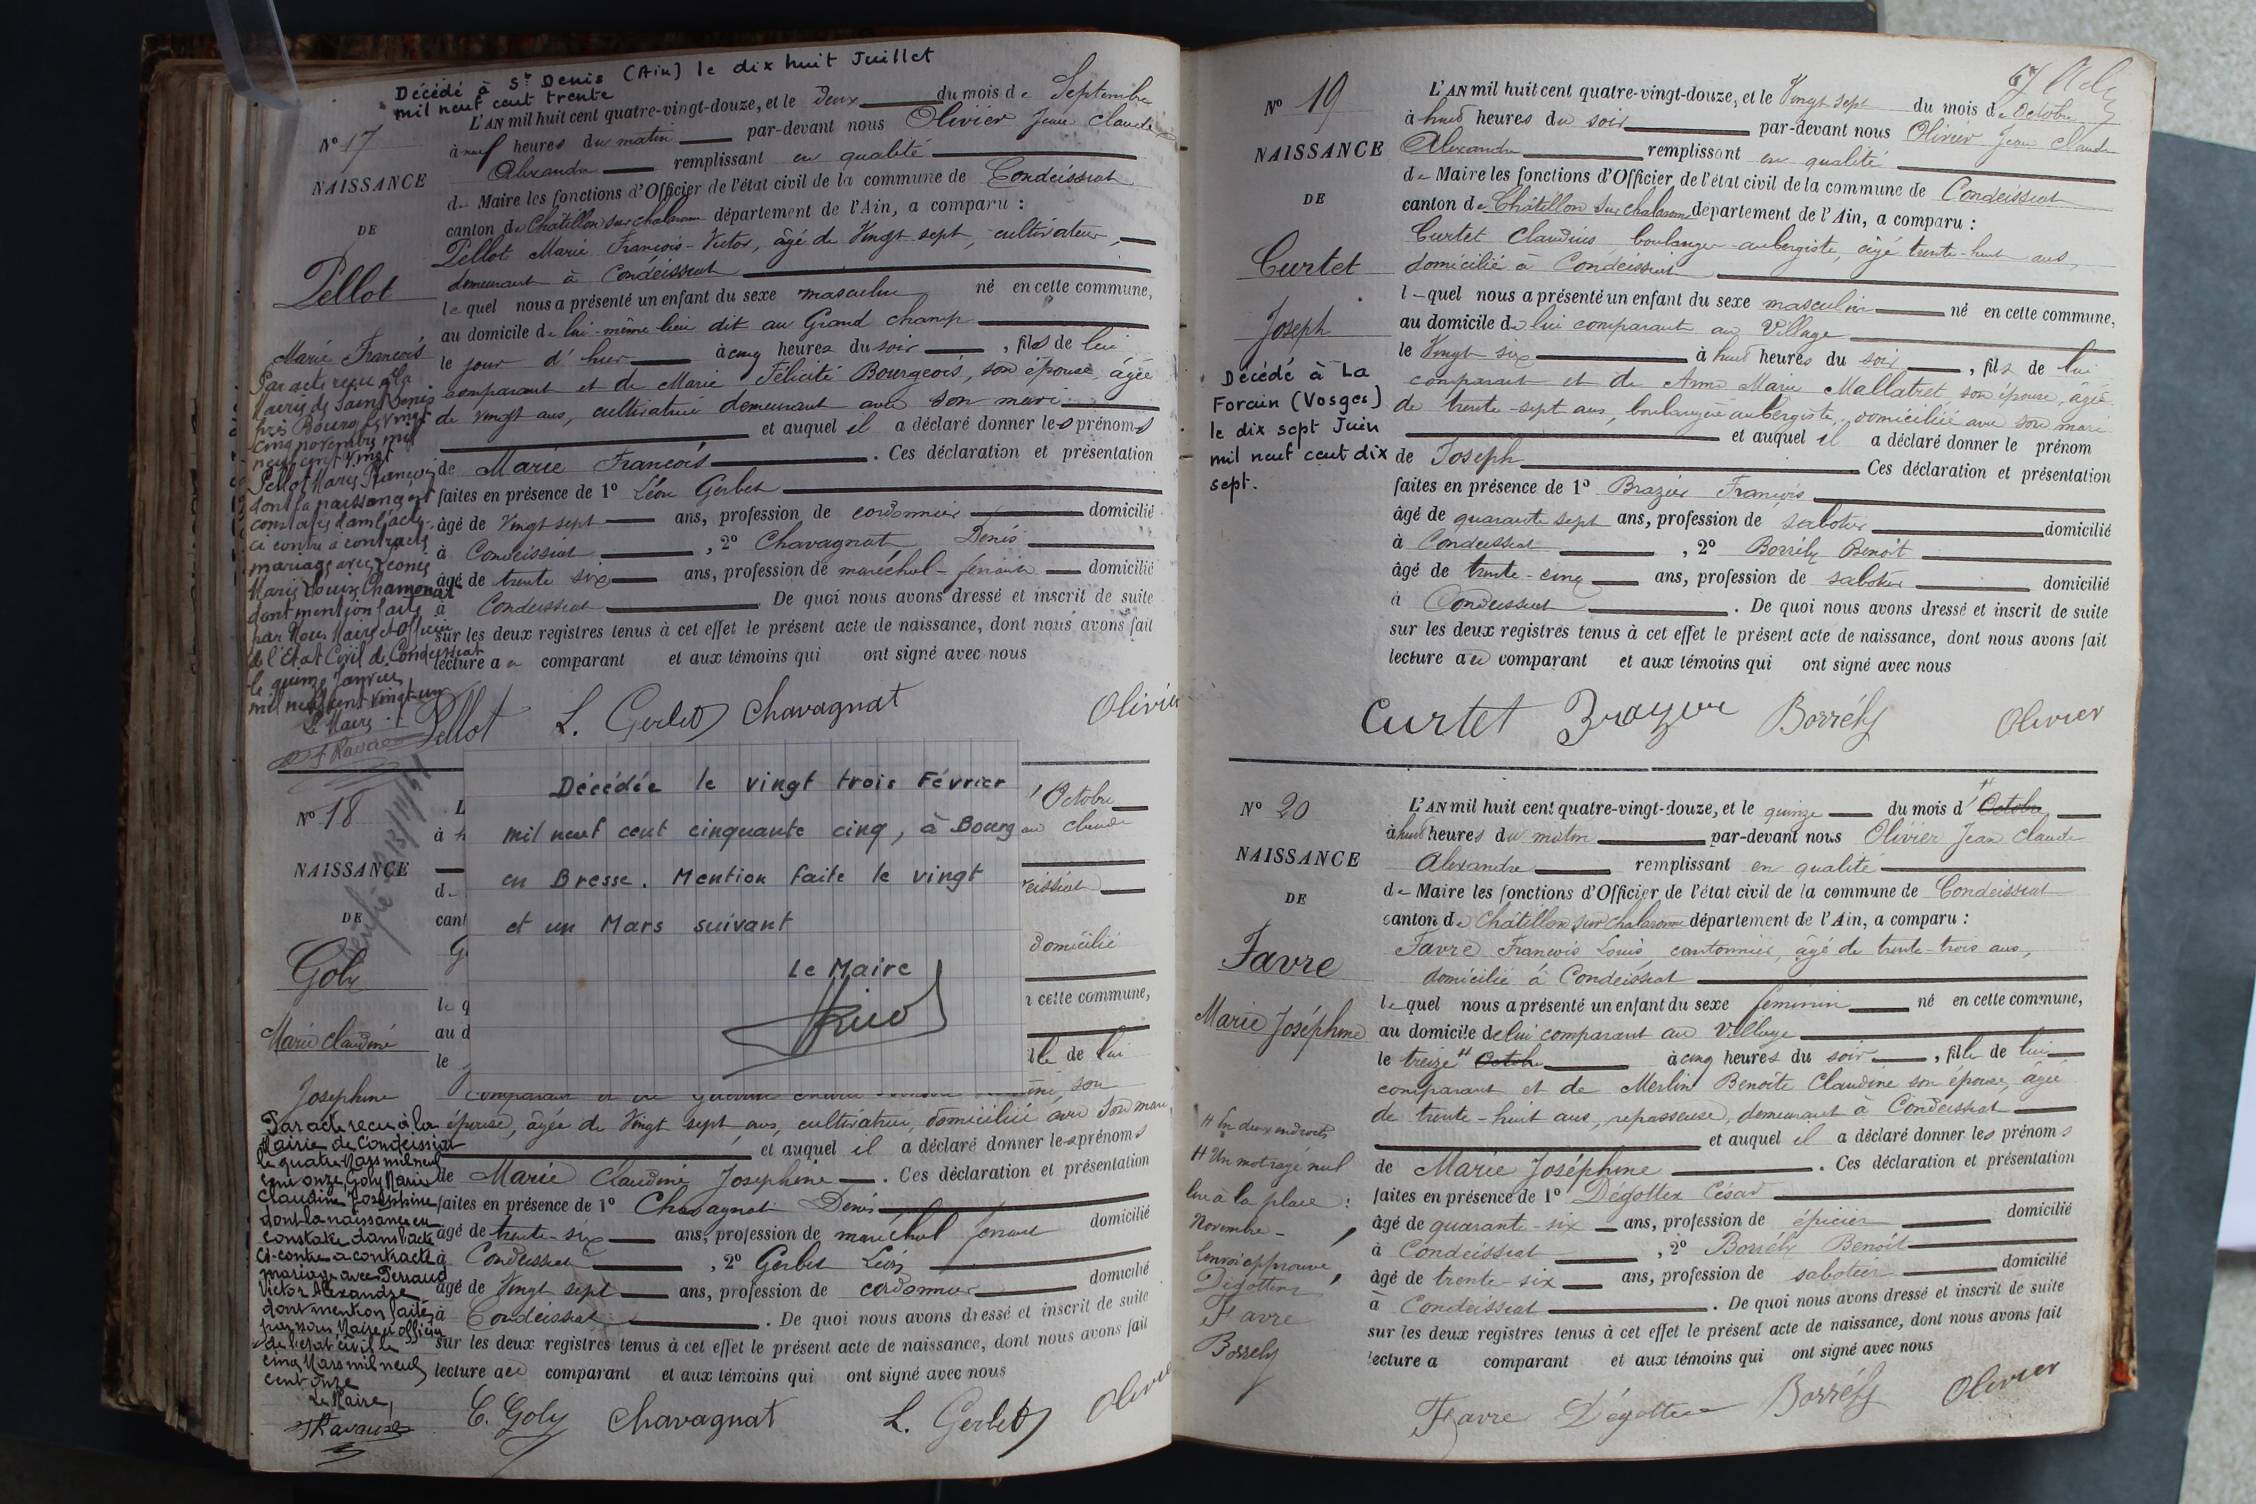 Décédé à St Denis (Ain) le dix huit Juillet
mil neuf cent trente
No 17
NAISSANCE
DE
Pellot
Marie François
Par acte reçu à la
Mairie de Saint Denis
près Bourg le vingt
cinq novembre mil
neuf cent vingt
Pellot Marie François
dont la naissance est
constatée dans l'acte
ci contre a contracté
mariage avec Léonie
Marie Louise Chamonal
dont mention faite
par Nous Maire et Officier
de l'Etat Civil de Condeissiat
le quinze Janvier
mil neuf cent vingt-un
Le Maire
L'AN mil huit cent quatre-vingt-douze, et le deux du mois de Septembre
à neuf heures du matin par-devant nous Olivier Jean Claude
Alexandre remplissant en qualité
de Maire les fonctions d'Officier de l'état civil de la commune de Condeissiat
canton de Châtillon sur Chalaronne département de l'Ain, a comparu :
Pellot Marie François-Victor, âgé de Vingt sept, cultivateur,
demeurant à Condeissiat
lequel nous a présenté un enfant du sexe masculin né en cette commune,
au domicile de lui-même lieu dit au Grand champ
le jour d'hier à cinq heures du soir, fils de lui
comparant et de Marie Félicité Bourgeois, son épouse âgée
de vingt ans, cultivatrice demeurant avec son mari
et auquel il a déclaré donner les prénoms
de Marie François. Ces déclaration et présentation
faites en présence de 1o Léon Gerbet
âgé de Vingt sept ans, profession de cordonnier domicilié
à Condeissiat, 2o Chavagnat Denis
âgé de trente six ans, profession de maréchal-ferrant domicilié
à Condeissiat De quoi nous avons dressé et inscrit de suite
sur les deux registres tenus à cet effet le présent acte de naissance, dont nous avons fait
lecture au comparant et aux témoins qui ont signé avec nous
Pellot L. Gerbet Chavagnat Olivier
No 18
NAISSANCE
DE
Goly
Marie Claudine
Joséphine
Par acte reçu à la
Mairie de Condeissiat
le quatre Mars mil neuf
cent onze, Goly Marie
Claudine Joséphine
dont la naissance est
constatée dans l'acte
ci-contre a contracté
mariage avec Perraud
Victor Alexandre
dont mention faite
par nous, Maire et officier
de l'état civil le
cinq Mars mil neuf
cent onze
Le Maire,
Décédée le vingt trois Février
mil neuf cent cinquante cinq, à Bourg
en Bresse. Mention faite le vingt
et un Mars suivant
Le Maire
Octobre
domicilié
cette commune,
fille de lui
épouse, âgée de Vingt sept ans, cultivatrice, domiciliée avec son mari
et auquel il a déclaré donner les prénoms
de Marie Claudine Joséphine. Ces déclaration et présentation
faites en présence de 1o Chavagnat Denis
âgé de trente-six ans, profession de maréchal ferrant domicilié
à Condeissiat, 2o Gerbet Léon
âgé de Vingt sept ans, profession de cordonnier domicilié
à Condeissiat. De quoi nous avons dressé et inscrit de suite
sur les deux registres tenus à cet effet le présent acte de naissance, dont nous avons fait
lecture au comparant et aux témoins qui ont signé avec nous
C. Goly Chavagnat L. Gerbet Olivier
No 19
NAISSANCE
DE
Curtet
Joseph
Décédé à La
Forain (Vosges)
le dix sept Juin
mil neuf cent dix
sept.
L'AN mil huit cent quatre-vingt-douze, et le Vingt sept du mois de Octobre
à huit heures du soir par-devant nous Olivier Jean Claude
Alexandre remplissant en qualité
de Maire les fonctions d'Officier de l'état civil de la commune de Condeissiat
canton de Châtillon sur Chalaronne département de l'Ain, a comparu :
Curtet Claudius boulanger-aubergiste, âgé trente-huit ans,
domicilié à Condeissiat
lequel nous a présenté un enfant du sexe masculin né en cette commune,
au domicile de lui comparant au Village
le Vingt six à huit heures du soir, fils de lui
comparant et de Anne Marie Mallatret, son épouse, âgée
de trente-sept ans, boulangère aubergiste, domiciliée avec son mari
et auquel il a déclaré donner le prénom
de Joseph Ces déclaration et présentation
faites en présence de 1o Brazier François
âgé de quarante sept ans, profession de sabotier domicilié
à Condeissiat, 2o Borrély Benoit
âgé de trente-cinq ans, profession de sabotier domicilié
à Condeissiat. De quoi nous avons dressé et inscrit de suite
sur les deux registres tenus à cet effet le présent acte de naissance, dont nous avons fait
lecture au comparant et aux témoins qui ont signé avec nous
Curtet Brazier Borrély Olivier
No 20
NAISSANCE
DE
Favre
Marie Joséphine
# En deux endroits
# Un mot rayé nul
lire à la place :
Novembre -
renvoi approuvé
Dégottex
Favre
Borrely
L'AN mil huit cent quatre-vingt-douze, et le quinze du mois d' # Octobre
à huit heures du matin par-devant nous Olivier Jean Claude
Alexandre remplissant en qualité
de Maire les fonctions d'Officier de l'état civil de la commune de Condeissiat
canton de Châtillon sur Chalaronne département de l'Ain, a comparu :
Favre François Louis, cantonnier, âgé de trente-trois ans,
domicilié à Condeissiat
lequel nous a présenté un enfant du sexe féminin né en cette commune,
au domicile de lui comparant au Village
le treize # Octobre à cinq heures du soir, fille de lui
comparant et de Merlin Benoîte Claudine son épouse, âgée
de trente-huit ans, repasseuse, demeurant à Condeissiat
et auquel il a déclaré donner les prénoms
de Marie Joséphine. Ces déclaration et présentation
faites en présence de 1o Dégottex César
âgé de quarante-six ans, profession de épicier domicilié
à Condeissiat, 2o Borrély Benoit
âgé de trente-six ans, profession de saboteur domicilié
à Condeissiat. De quoi nous avons dressé et inscrit de suite
sur les deux registres tenus à cet effet le présent acte de naissance, dont nous avons fait
lecture a comparant et aux témoins qui ont signé avec nous
Favre Dégottex Borrély Olivier